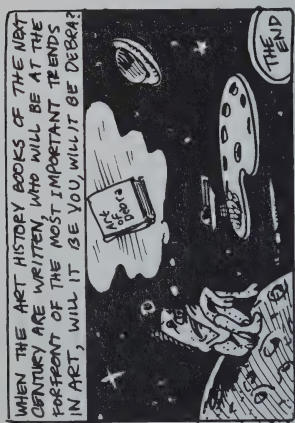 WHEN THE ART HISTORY BOOKS OF THE NEXT
CENTURY ARE WRITTEN, WHO WILL BE AT THE
FORFRONT OF THE MOST IMPORTANT TRENDS
IN ART, WILL IT BE YOU, WILL IT BE DEBRA?
Art
OF
Debra
THE
END